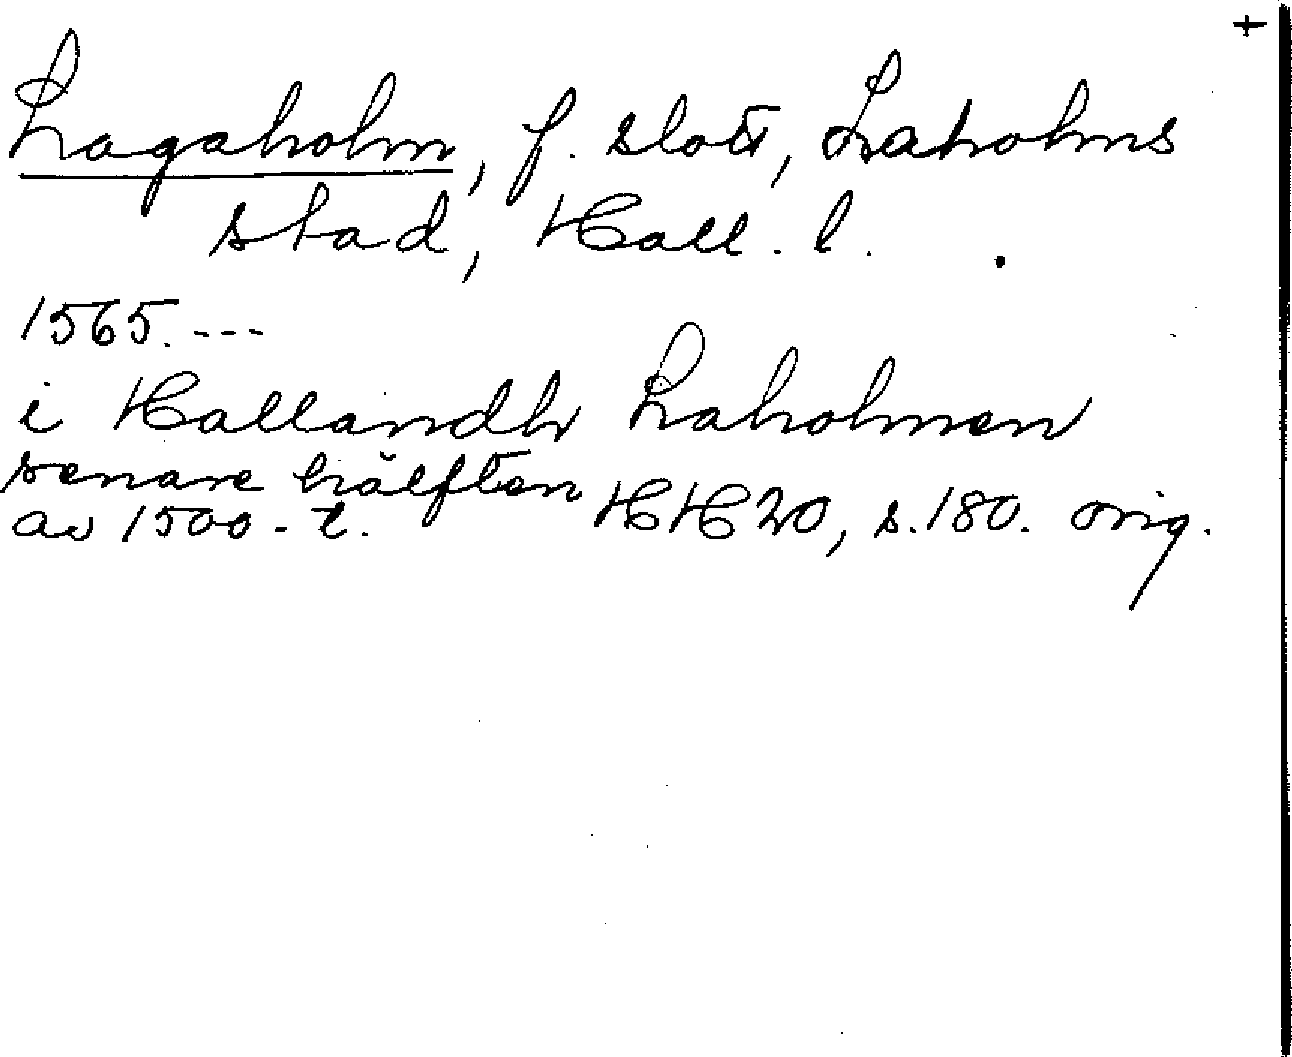 +
Lagaholm, f. slott, Laholms
stad, Hall. l.
1565. ---
i Hallandh Laholmen
senare hälften
av 1500-t. HH 20, s. 180. orig.